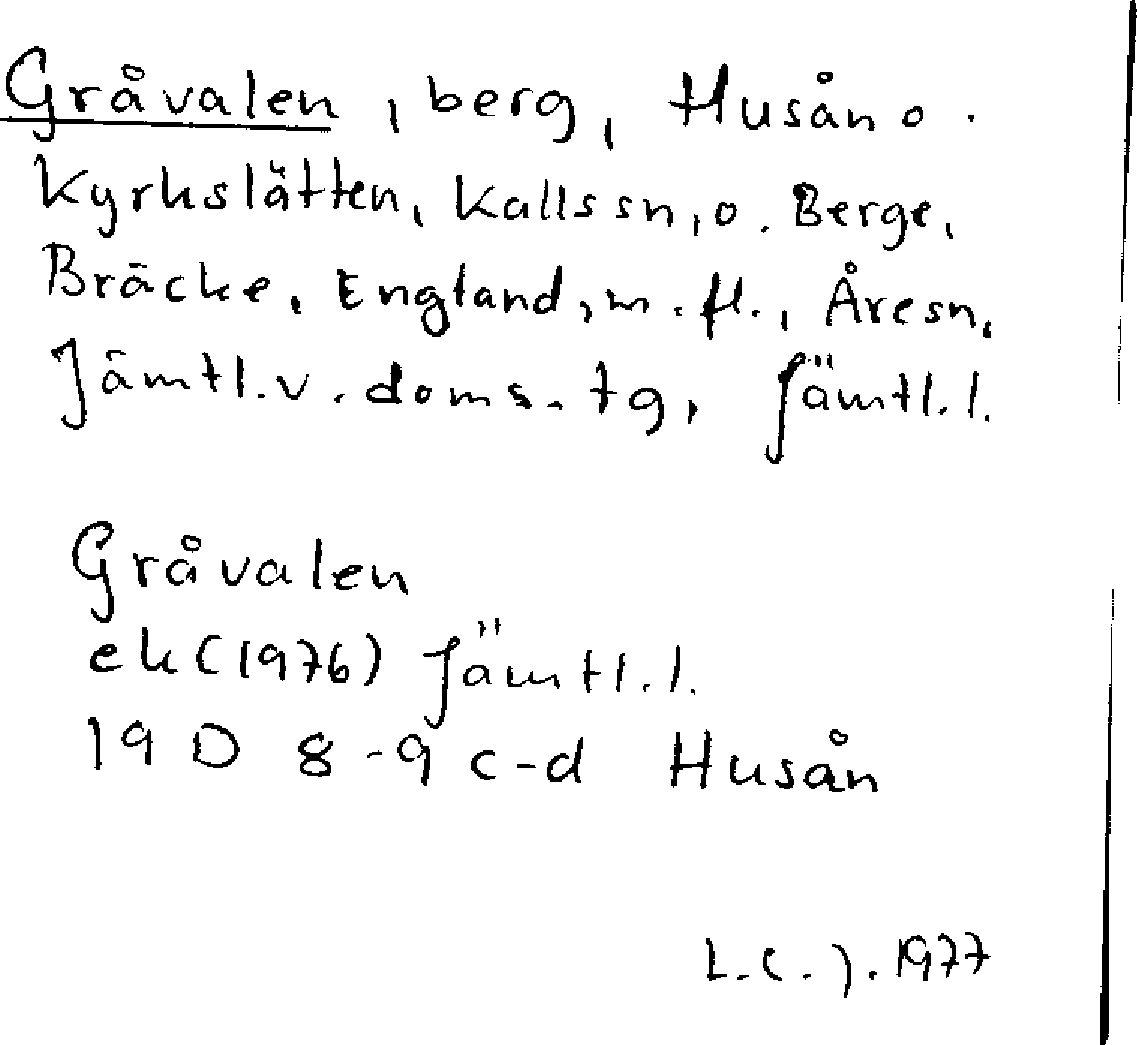 Gråvalen, berg, Husån o.
Kyrkslätten, Kalls sn, o. Berge,
Bräcke, England, m. fl., Åre sn,
Jämtl. v. doms. tg, Jämtl. l.
Gråvalen
ek (1976) Jämtl. l.
19 D 8-9 c-d Husån
L.C.J. 1977